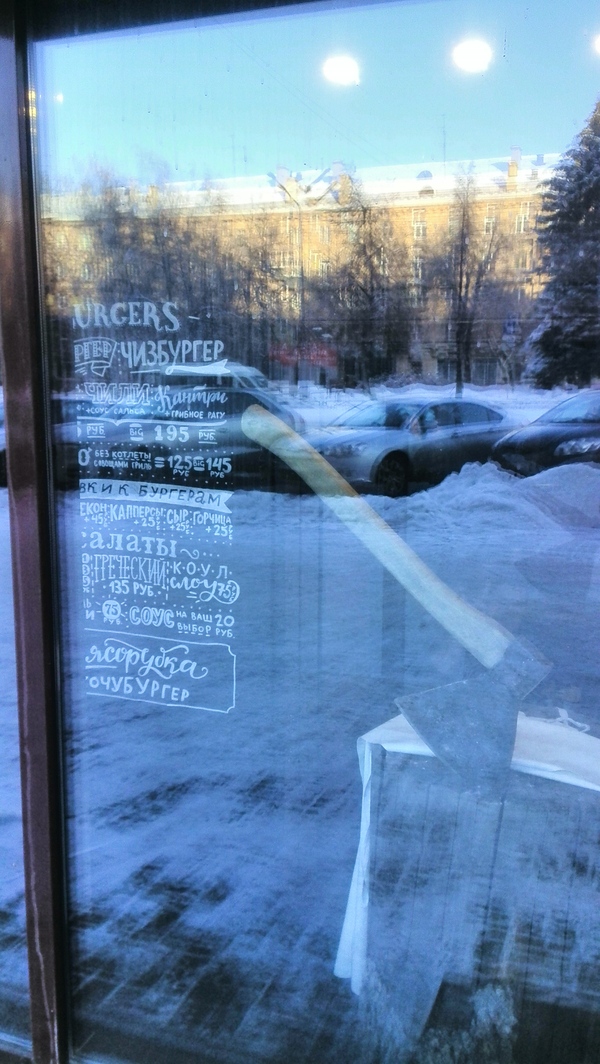 URGERS
РГЕР ЧИЗБУРГЕР
ЧИЛИ Кантри
+СОУС САЛЬСА +ГРИБНОЕ РАГУ
РУБ BIG 195 РУБ.
БЕЗ КОТЛЕТЫ
С ОВОЩАМИ ГРИЛЬ = 125 РУБ BIG 145 РУБ.
ВКИ К БУРГЕРАМ
ЕКОН КАППЕРСЫ СЫР ГОРЧИЦА
+45 +25 +25 +25
алаты
ГРЕЧЕСКИЙ КОУЛ
135 РУБ. слоу 75
И 75 СОУС НА ВАШ ВЫБОР 20 РУБ.
ясорубка
ОЧУБУРГЕР